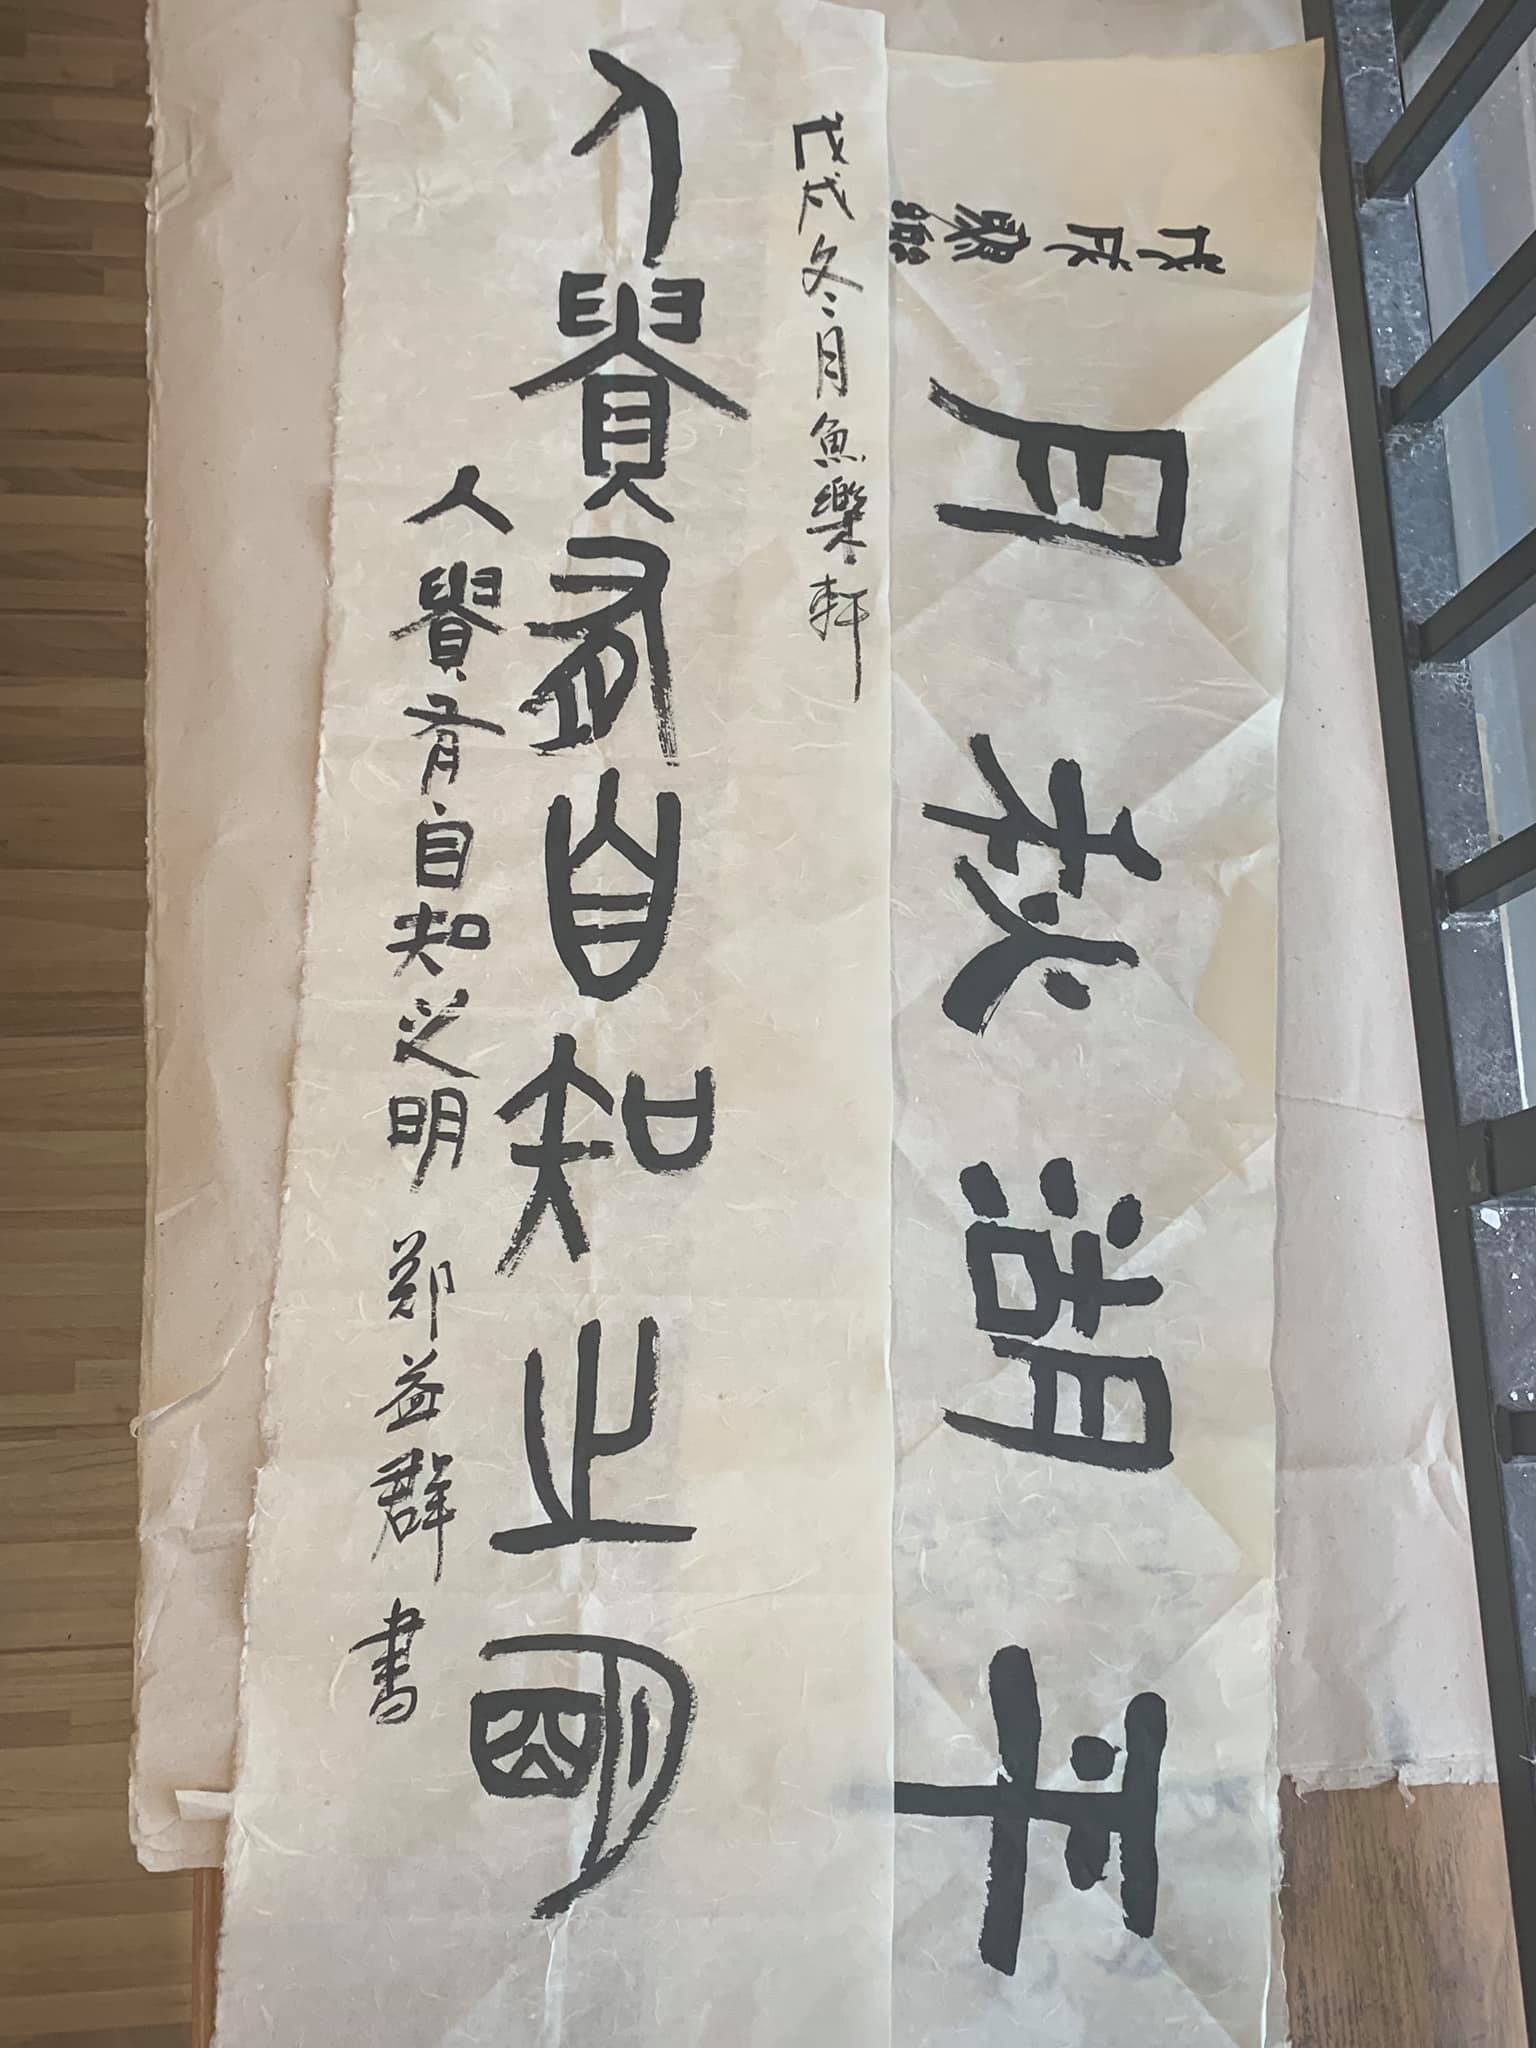 平湖秋月
戊戌
戊戌冬月魚樂軒
人貴有自知之明
人貴有自知之明 郑益群書